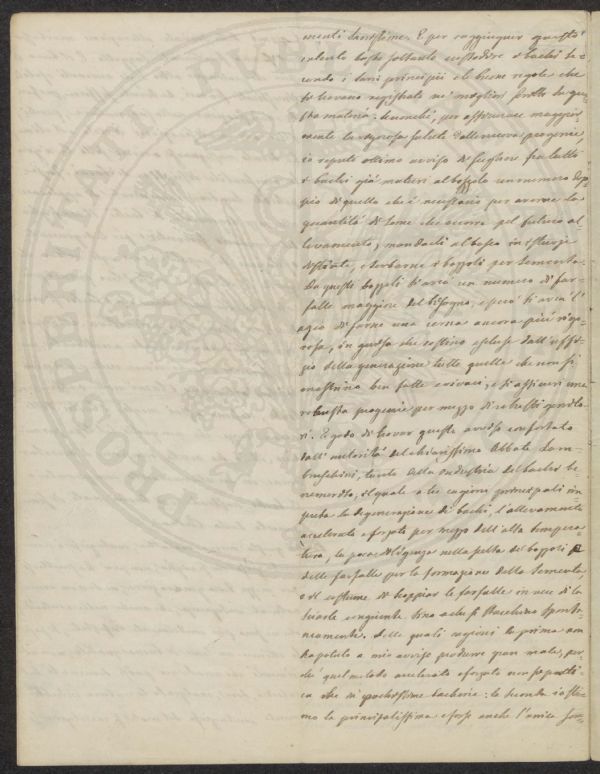 menti dannissime. E per raggiunger questo
intento basta soltanto custodire i bachi se-
condo i sani principii e le buone regole che
si trovano registrate ne' migliori scritti su que-
sta materia. Nonché, per assicurare maggior-
mente la vigorosa salute della nuova progenie,
io reputo ottimo avviso di scegliere fra tutti
i bachi già maturi al bozzolo un numero dop-
pio di quello che è necessario per averne la
quantità di seme che occorre pel futuro al-
levamento, mandarli al bosco in
e serbarne i bozzoli per semente.
Da questi bozzoli si avrà un numero di far-
falle maggiore del bisogno, e però si avrà l'
agio di farne una cerna ancora più rigo-
rosa, in guisa che restino escluse dall'uffi-
zio della generazione tutte quelle che non si
mostrino ben fatte e vivaci, e si assicuri una
robusta progenie per mezzo di robusti genito-
ri. E godo di trovar questo avviso confortato
dall'autorità del chiarissimo Abbate Lam-
bruschini, tanto della industria de' bachi be-
nemerito, il quale a tre cagioni principali im-
puta la degenerazione di bachi, l'allevamento
accelerato e forzato per mezzo dell'alta tempera-
tura, la poca diligenza nella scelta de' bozzoli e
delle farfalle per la formazione della semente,
e il costume di scoppiar le farfalle in vece di la-
sciarle congiunte fino a che si stacchino sponta-
neamente. Delle quali cagioni la prima non
ha potuto a mio avviso produrre gran male, per-
ché quel metodo accelerato e forzato non si prati-
ca che in pochissime bacherie: la seconda io sti-
mo la principalissima e forse anche l'unica